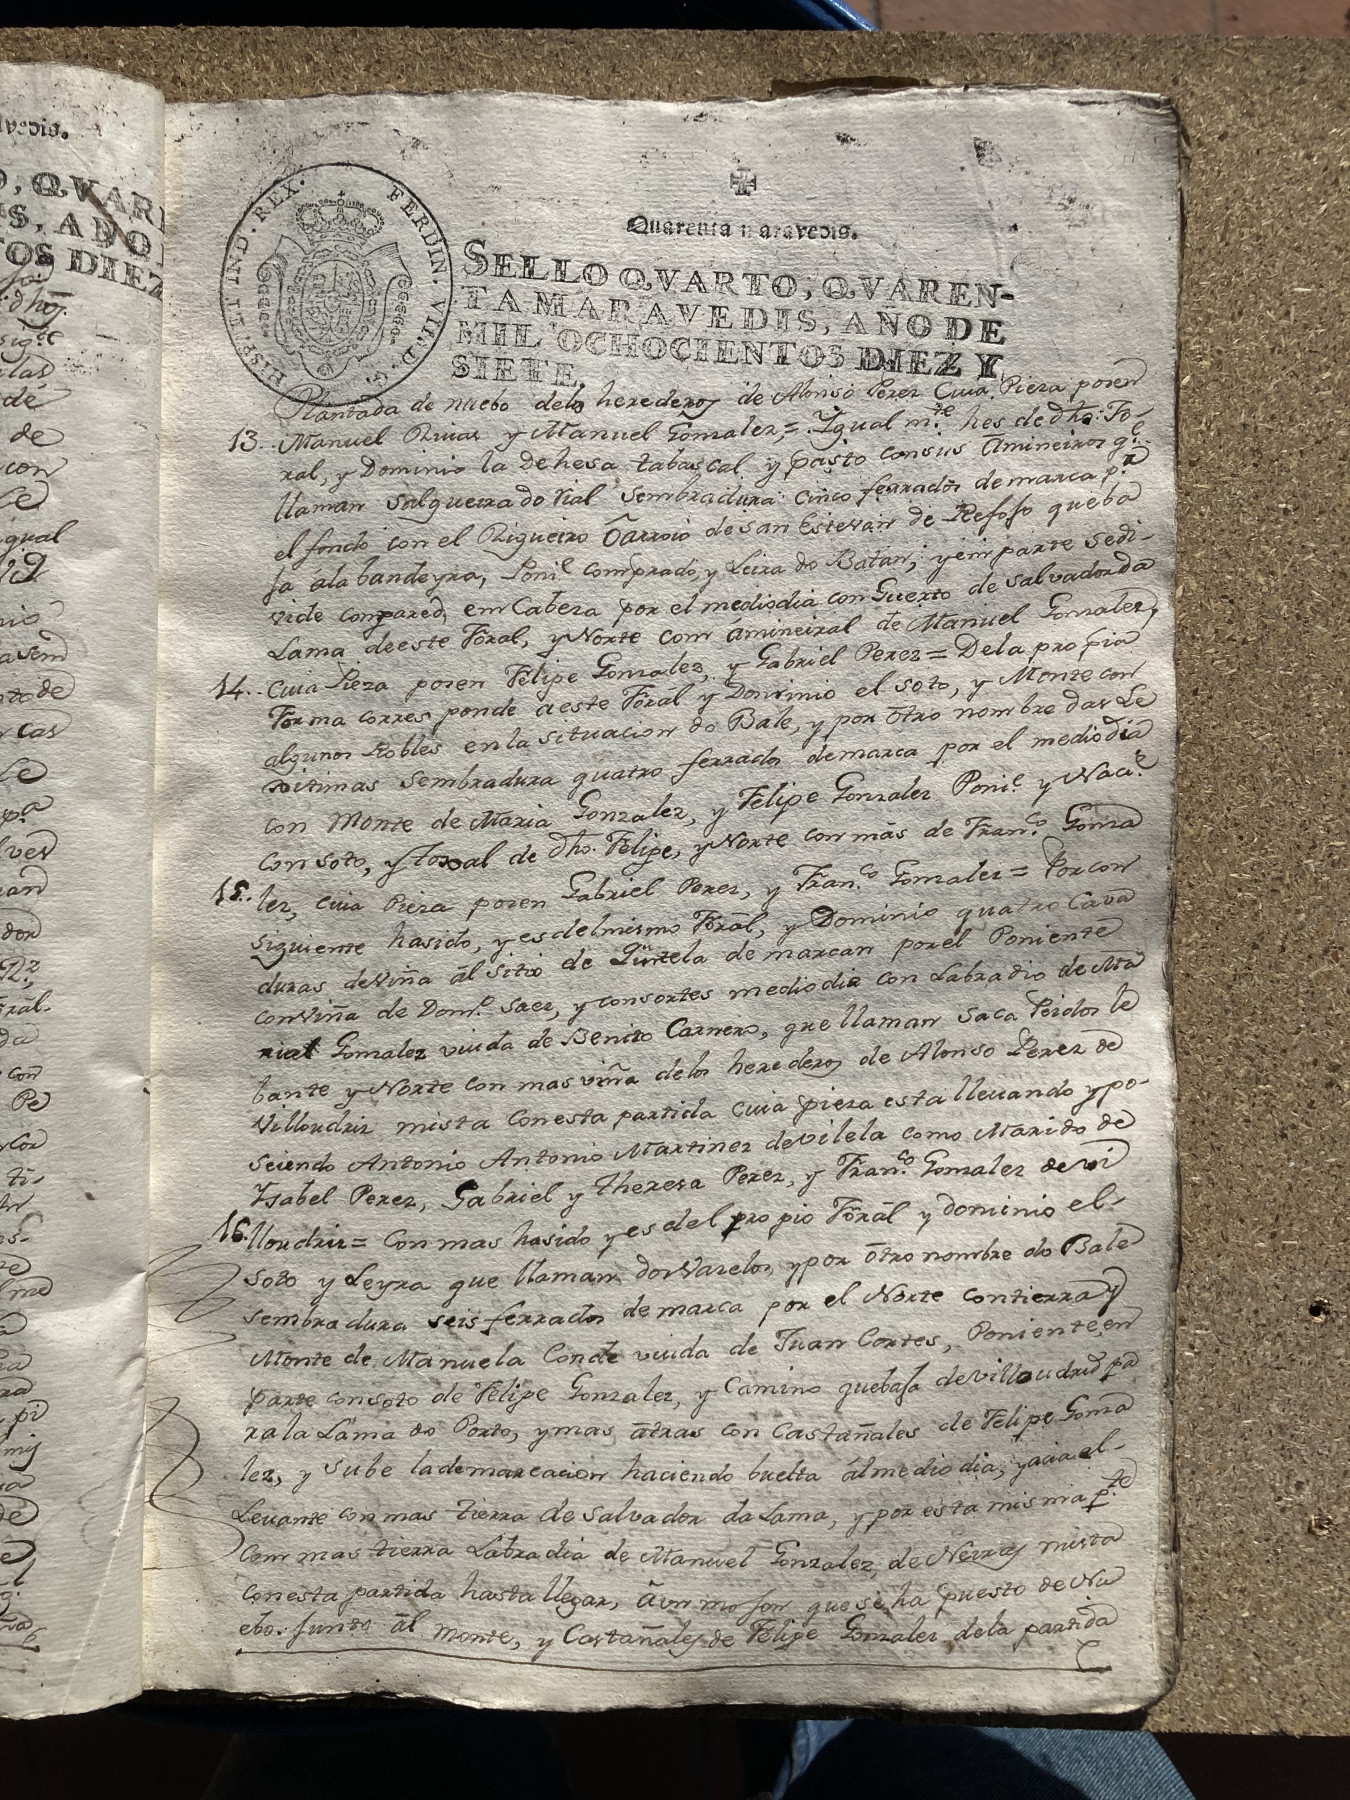 HISP. ET IND. REX. FERDIN. VII. D. G.
Quarenta maravedis.
SELLO QVARTO, QVAREN-
TA MARAVEDIS, AÑO DE
MIL OCHOCIENTOS DIEZ Y
SIETE.
Plantada de nuebo delos herederos de Alonso Perez Cuia Pieza posen
13.. Manuel Rivas y Manuel Gonzalez,=. Ygual m.te hes de dho. Fo-
ral, y Dominio la dehesa tabascal y pasto consus amineiros q.e
llaman Salgueira do Vial sembradura cinco ferrados demarca p.r
el fondo con el Rigueiro o arroio de san Estevan de Refoso queba
ja ala bandeyra, Poni.e comprado, y Leira do Batan; yemparte sedi-
vide compared, em Cabeza por el mediodia con Guerto de salvador da
Lama deeste Foral, y Norte com amineiral de Manuel Gonzalez,
14.. Cuia Pieza posen Felipe Gonzalez, y Gabriel Perez = Dela propia
Forma corresponde aeste Foral y Dominio el soto, y Monte con
algunos Robles enla situacion do Bale, y por otro nombre das Se
sitimas sembradura quatro ferrados demarca por el mediodia
con Monte de Maria Gonzalez, y Felipe Gonzalez Poni.e y Naci.e
con soto, y toxal de dho. Felipe, y Norte con más de Fran.co Gonza
15.. lez, cuia Pieza poseen Gabriel Perez, y Fran.co Gonzalez = Porcon
siguiente hasido, y es delmismo Foral, y Dominio quatro Cava
duras deviña al sitio de Quintela demarcan porel Poniente
conviña de Dom.o Saez, y consortes mediodia con Labradio de Ma
riat Gonzalez viuda de Benito Carnero, que llaman Saca Peidos le
bante y Norte con mas viña delos herederos de Alonso Perez de
Villoudriz mista conesta partida cuia pieza esta llevando y po-
seiendo Antonio Antonio Martinez devilela como Marido de
Ysabel Perez, Gabriel y Theresa Perez, y Fran.co Gonzalez de vi
16. lloudriz = Con mas hasido y es del propio Foral y dominio el-
soto y Leyra que llaman dos Varelos, ypor otro nombre do Bale
sembradura seis ferrados demarca por el Norte contierra y
Monte de Manuela Conde viuda de Juan Cortes, Poniente, en
parte consoto de Felipe Gonzalez, y Camino quebaja devilloudriz pa
rala Lama do Porto, ymas atras con Castañales de Felipe Gonza
lez, y sube lademarcacion haciendo buelta almediodia, yacia el-
Levante conmas tierra de Salvador da Lama, y por esta misma p.te
Com mas tierra Labradia de Manuel Gonzalez, de Neiras mista
conesta partida hasta llegar, a un mojon que se ha puesto de Nu
ebo. Junto al Monte, y Castañales de Felipe Gonzalez dela partida